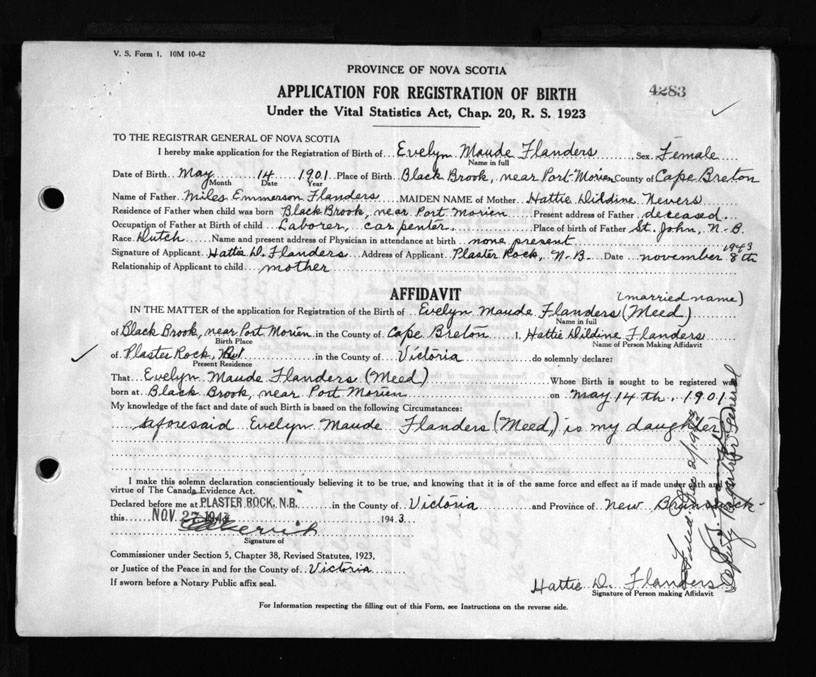 V. S. Form 1. 10M 10-42
PROVINCE OF NOVA SCOTIA
4283
APPLICATION FOR REGISTRATION OF BIRTH
Under the Vital Statistics Act, Chap. 20, R. S. 1923
TO THE REGISTRAR GENERAL OF NOVA SCOTIA
I hereby make application for the Registration of Birth of Evelyn Maude Flanders, Sex Female
Name in full
Date of Birth May 14 1901 Place of Birth Black Brook, near Port Morien County of Cape Breton
Month Date Year
Name of Father Miles Emmerson Flanders MAIDEN NAME of Mother Hattie Dildine Nevers
Residence of Father when child was born Black Brook, near Port Morien Present address of Father deceased
Occupation of Father at Birth of child Laborer, carpenter Place of birth of Father St. John, N-B.
Race Dutch Name and present address of Physician in attendance at birth none present
1943
Signature of Applicant Hattie D. Flanders Address of Applicant Plaster Rock, N-B. Date november 8th
Relationship of Applicant to child mother
AFFIDAVIT
(married name)
IN THE MATTER of the application for Registration of the Birth of Evelyn Maude Flanders (Meed)
Name in full
of Black Brook, near Port Morien in the County of Cape Breton I, Hattie Dildine Flanders
Birth Place Name of Person Making Affidavit
of Plaster Rock, in the County of Victoria do solemnly declare:
Present Residence
That Evelyn Maude Flanders (Meed) Whose Birth is sought to be registered was
born at Black Brook, near Port Morien on May 14 th 1901
My knowledge of the fact and date of such Birth is based on the following Circumstances:
aforesaid Evelyn Maude Flanders (Meed,) is my daughter
I make this solemn declaration conscientiously believing it to be true, and knowing that it is of the same force and effect as if made under oath and by
virtue of The Canada Evidence Act.
Declared before me at PLASTER ROCK, N.B. in the County of Victoria and Province of New Brunswick
this NOV 27 1943 1943
Signature of
Commissioner under Section 5, Chapter 38, Revised Statutes, 1923,
or Justice of the Peace in and for the County of Victoria
If sworn before a Notary Public affix seal.
Hattie D. Flanders
Signature of Person making Affidavit
For Information respecting the filling out of this Form, see Instructions on the reverse side.
Deputy Registrar General